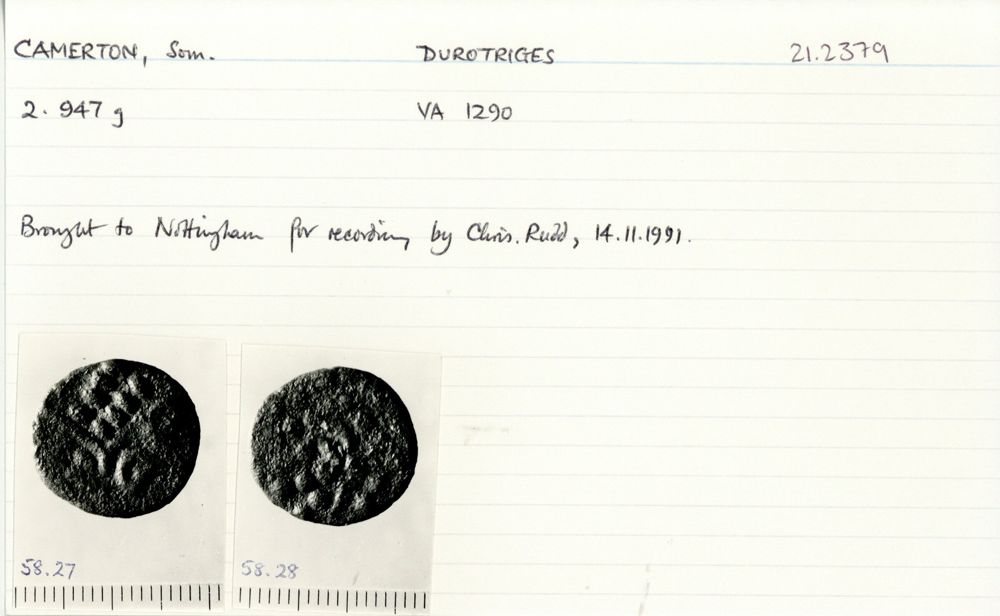 CAMERTON, Som. DUROTRIGES 21.2379
2.947 g VA 1290
Brought to Nottingham for recording by Chris. Rudd, 14.11.1991.
58.27 58.28